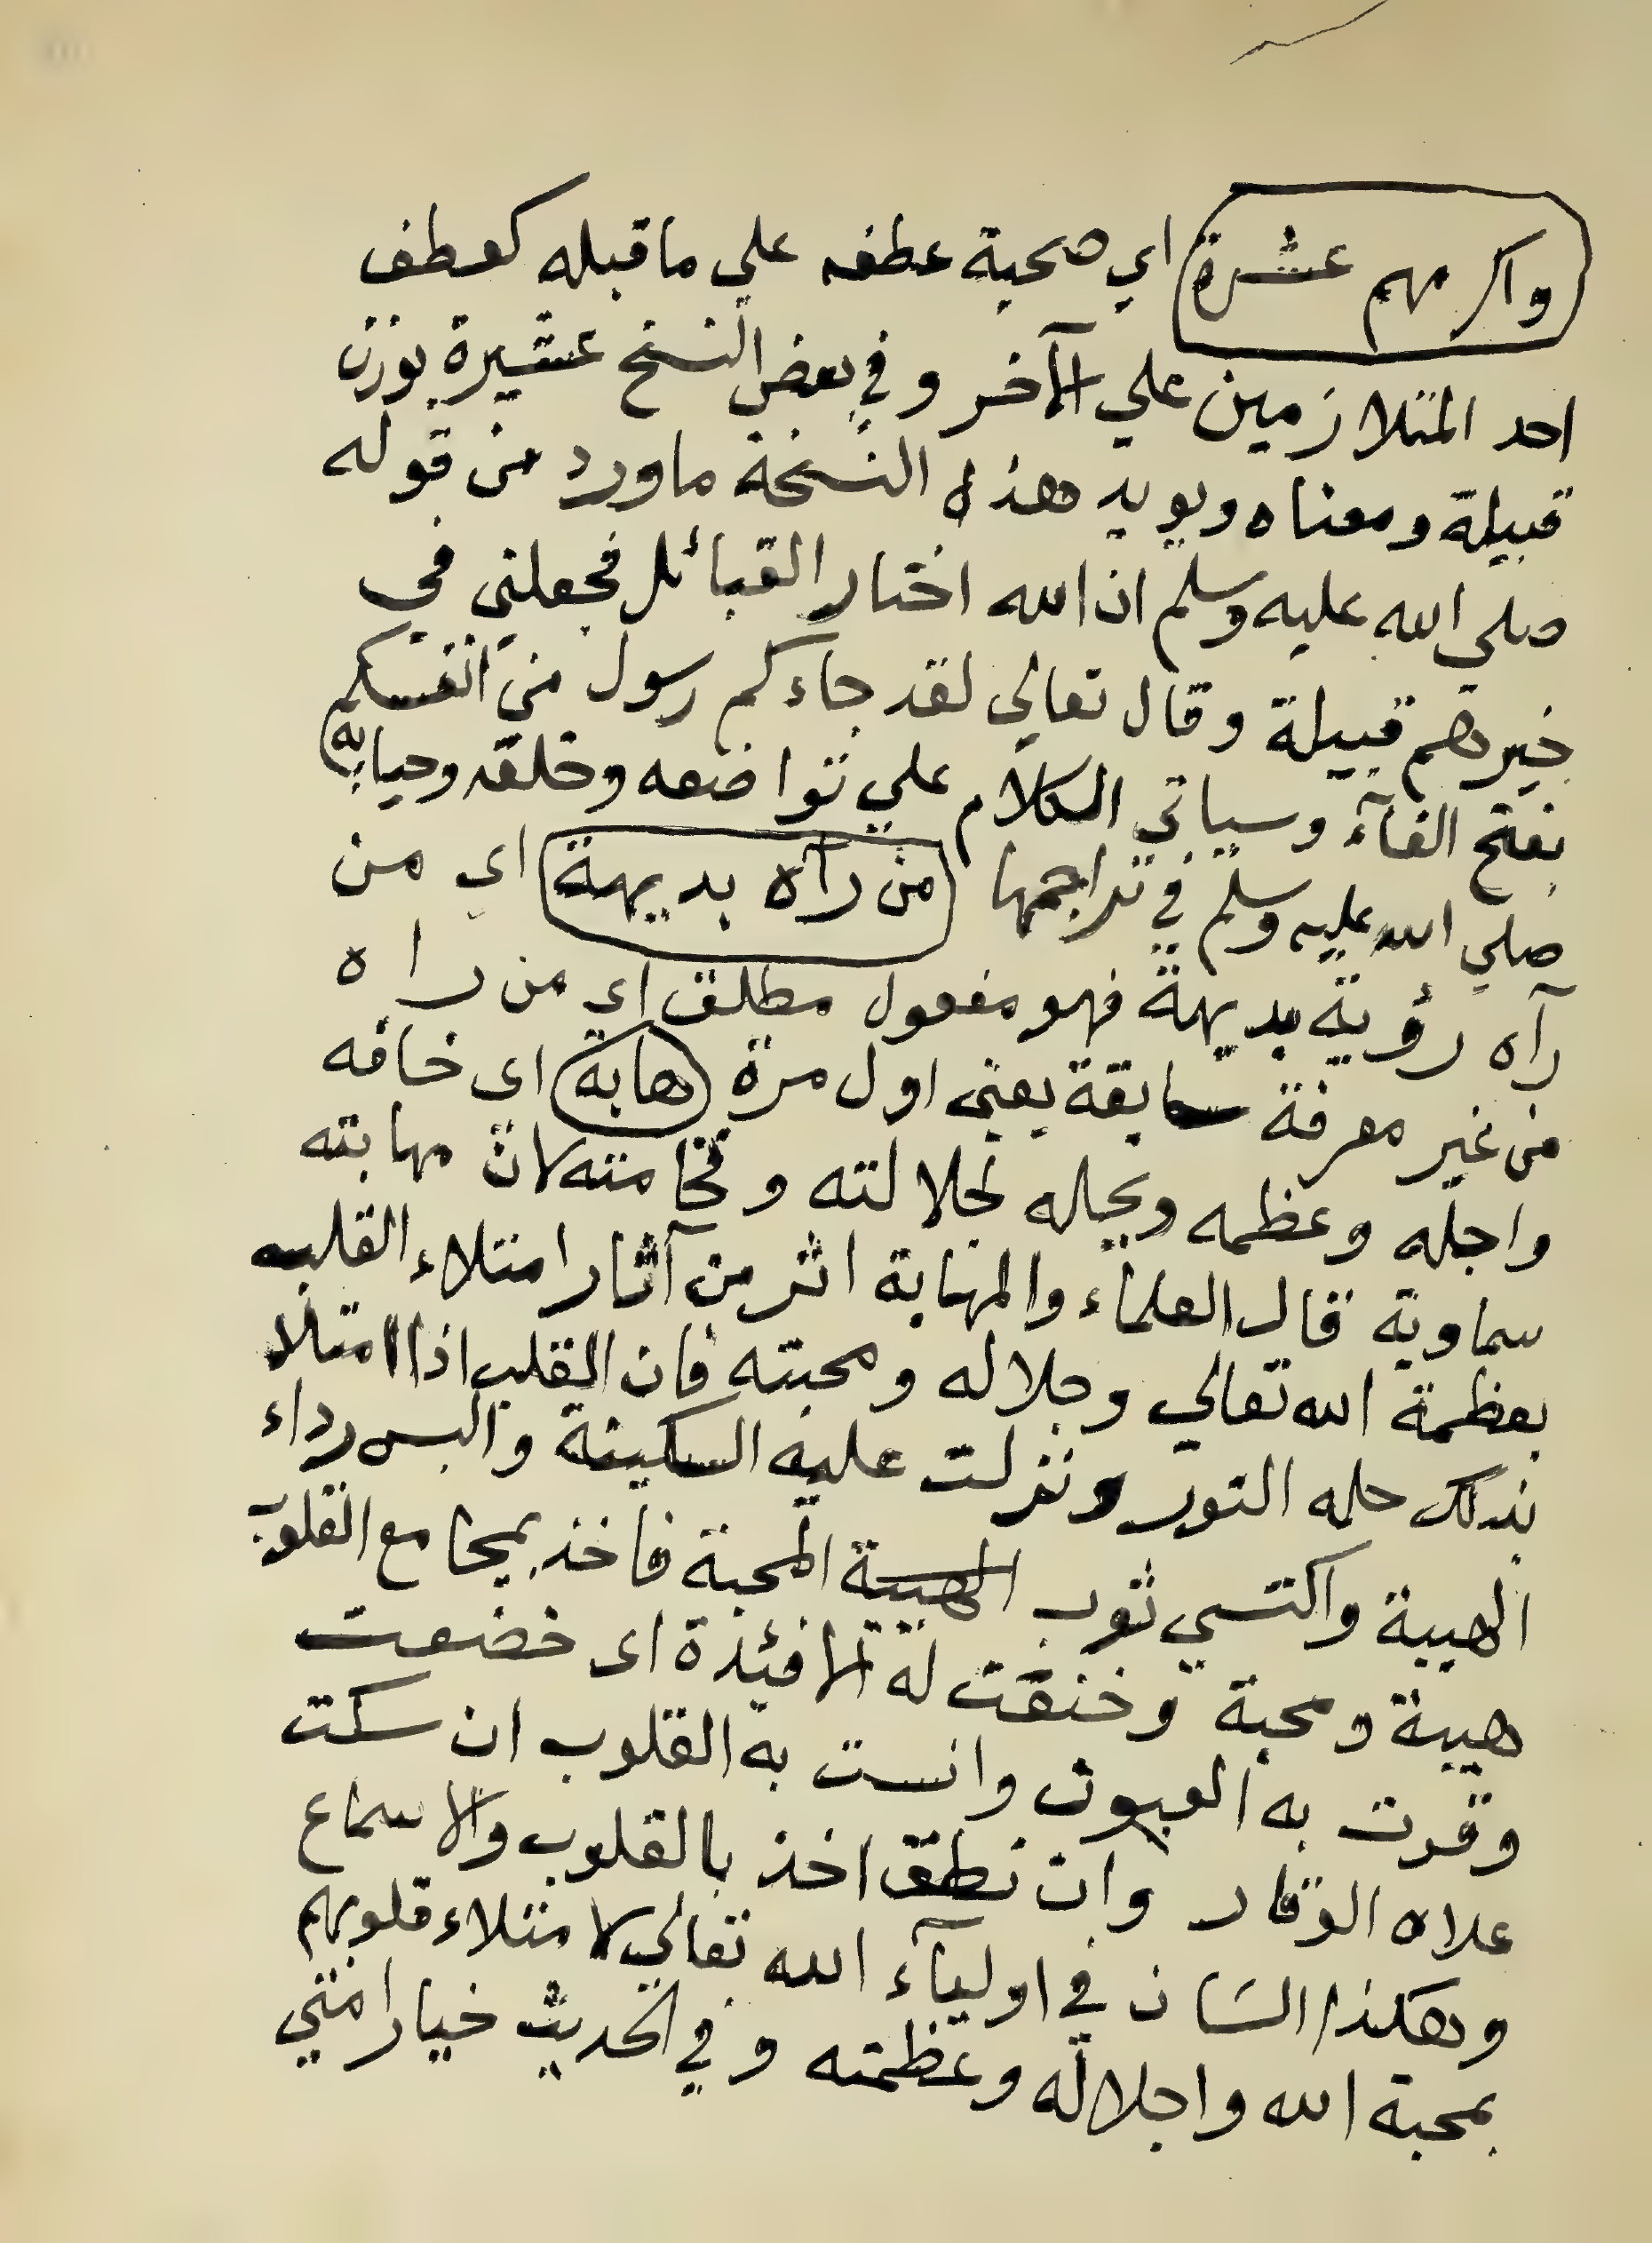 واكرمهم عشرة اي صحبة عطفه علي ما قبله كعطف
احد المتلازمين علي الآخر وفي بعض النسخ عشيرة بوزن
قبيلة ومعناه ويويد هذه النسخة ما ورد من قوله
صلي الله عليه وسلم ان الله اختار القبائل فجعلني في
خيرهم قبيلة وقال تعالي لقد جاءكم رسول من انفسكم
بفتح الفآء وسياتي الكلام علي تواضعه وخلقه وحيايه
صلي الله عليه وسلم في تراجمها من رآه بديهة اي من
رآه رؤية بديهة فهو مفعول مطلق اي من راه
من غير معرفة سابقة يعني اول مرة هابه اي خافه
واجله وعظمه وبجله لجلالته وفخامته لان مهابته
سماوية قال العلماء والمهابة اثر من آثار امتلاء القلب
بعظمة الله تعالي وجلاله ومحبته فان القلب اذا امتلا
بذلك حله النور ونزلت عليه السكينة والبس رداء
الهيبة واكتسي ثوب الهيبة المحبة فاخذ بمجامع القلوب
هيبة ومحبة وخنقت له الافئدة اي خضعت
وقرت به العيون وانست به القلوب ان سكت
علاه الوقار وان نطق اخذ بالقلوب والاسماع
وهكذا الشان في اوليآء الله تعالي لامتلاء قلوبهم
بمحبة الله واجلاله وعظمته وفي الحديث خيار امتي